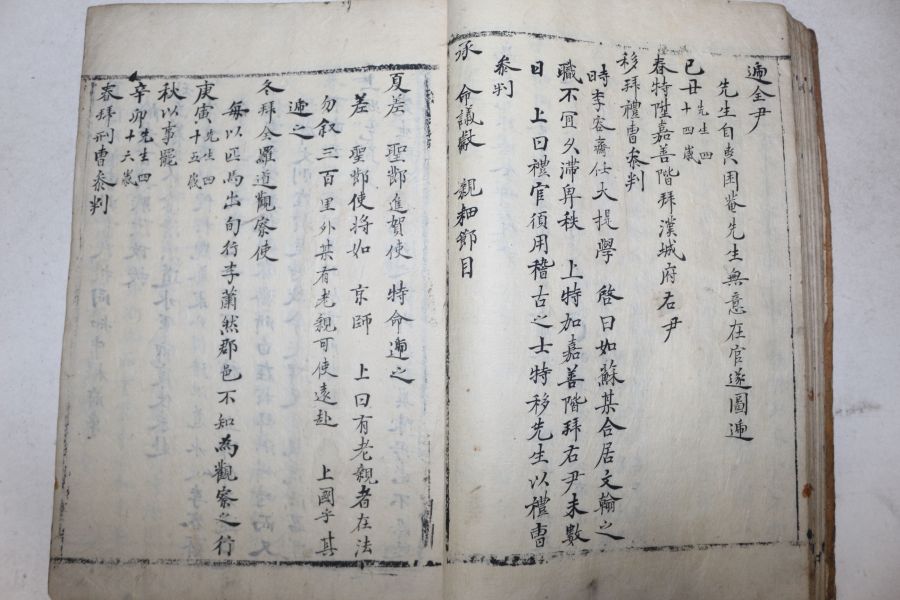 遞全尹
先生自喪困菴先生無意在官遂圖遞
己丑 先生四十四歲
春特陞嘉善階拜漢城府右尹
移拜禮曹叅判
時李容齋仕大提學 啓曰如蘇某合居文翰之
職不宜久滯卑秩 上特加嘉善階拜右尹未數
日 上曰禮官須用稽古之士特移先生以禮曹
叅判
承 命議獻 親細節目
夏差 聖節進賀使 特命遞之
差 聖節使將如 京師 上曰有老親者在法
勿敘三百里外某有老親可使遠赴 上國乎其
遞之
冬拜全羅道觀察使
每以匹馬出旬行李蕭然郡邑不知為觀察之行
庚寅 先生四十五歲
秋以事罷
辛卯 先生四十六歲
春拜刑曹叅判